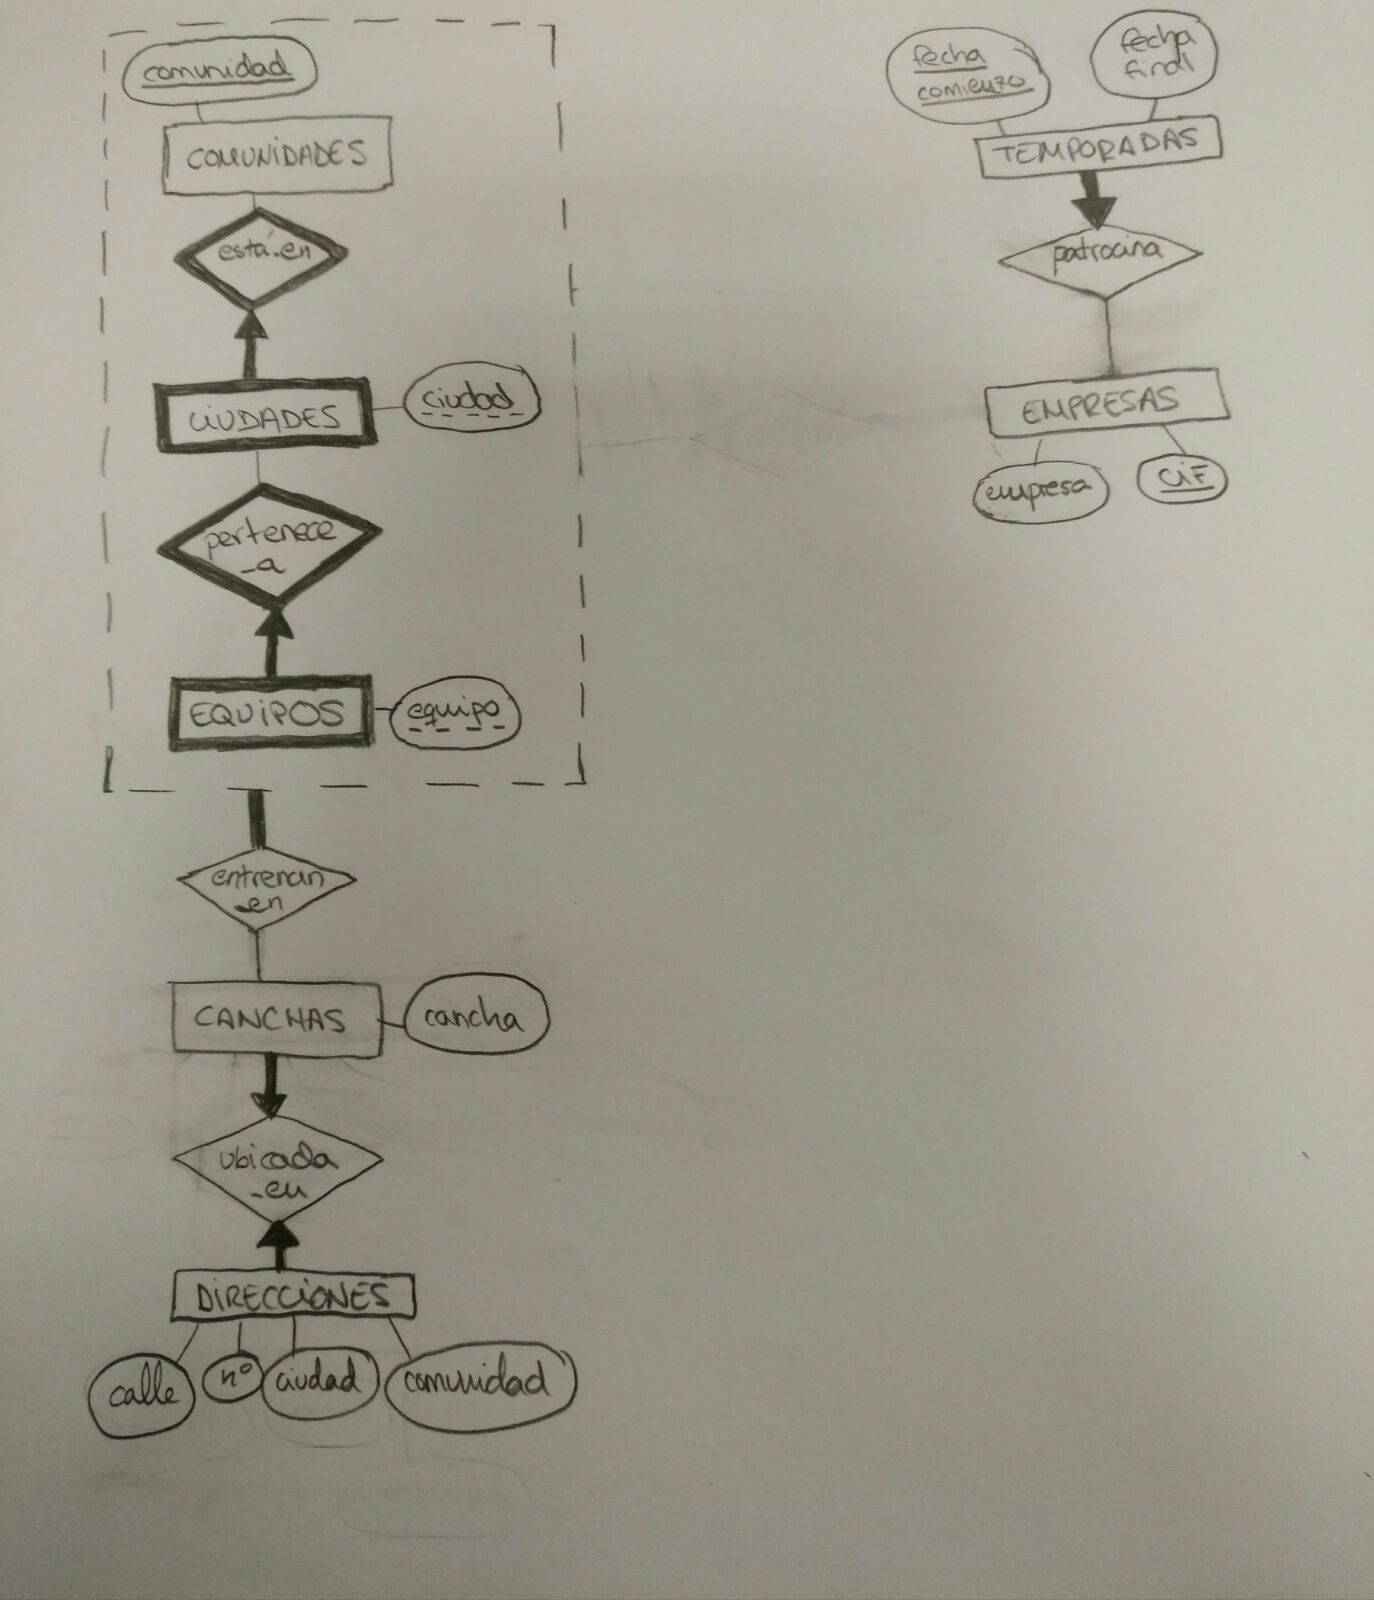 comunidad
COMUNIDADES
está-en
CIUDADES
ciudad
pertenece
-a
EQUIPOS
equipo
entrenan
-en
CANCHAS
cancha
ubicada
-en
DIRECCIONES
calle
nº
ciudad
comunidad
fecha
comienzo
fecha
final
TEMPORADAS
patrocina
EMPRESAS
empresa
CIF